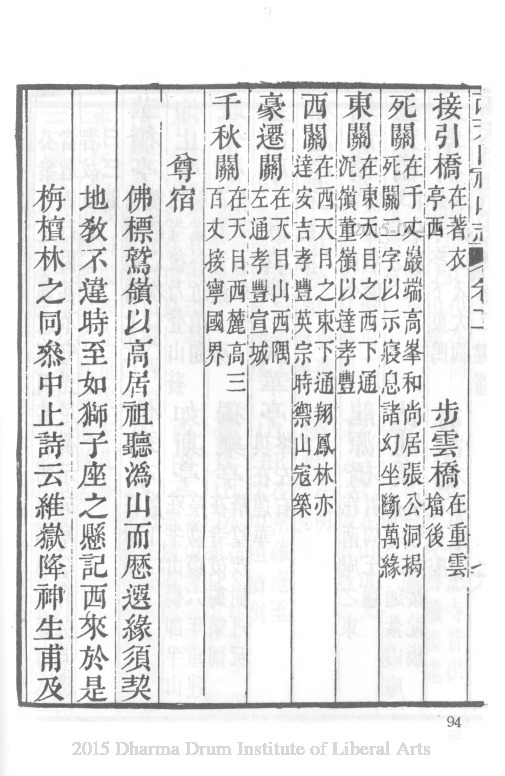 接引橋在著衣亭西 步雲橋在重雲檐後
死關在千丈巖端高峯和尚居張公洞揭死關二字以示寢息諸幻坐斷萬緣
東關在東天目之西下通沉嶺董嶺以達孝豐
西關在西天目之東下通翔鳳林亦達安吉孝豐英宗時禦山寇築
豪遷關在天目山西隅左通孝豐宣城
千秋關在天目西麓高三百丈接寧國界
尊宿
佛標鷲嶺以高居祖聽溈山而懕選緣須契
地敎不違時至如獅子座之懸記西來於是
栴檀林之同叅中止詩云維嶽降神生甫及
94
2015 Dharma Drum Institute of Liberal Arts